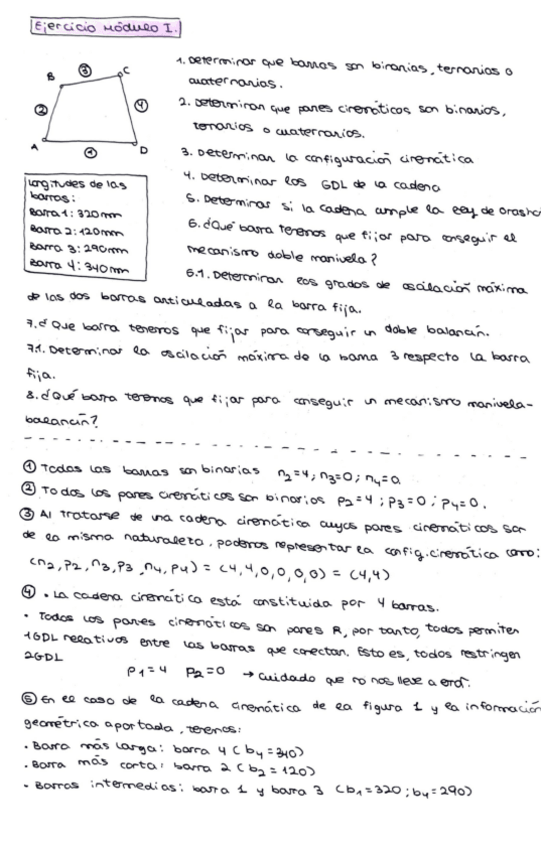 Ejercicio módulo I.
1. Determinar que barras son binarias, ternarias o
cuaternarias.
2. Determinar que pares cinemáticos son binarios,
ternarios o cuaternarios.
3. Determinar la configuración cinemática
4. Determinar los GDL de la cadena
5. Determinar si la cadena cumple la ley de Grashof
6. ¿Qué barra tenemos que fijar para conseguir el
mecanismo doble manivela?
6.1. Determinar los grados de oscilación máxima
de las dos barras articuladas a la barra fija.
7. ¿Que barra tenemos que fijar para conseguir un doble balancín.
7.1. Determinar la oscilación máxima de la barra 3 respecto la barra
fija.
8. ¿Qué barra tenemos que fijar para conseguir un mecanismo manivela-
balancín?
A
B
C
D
1
2
3
4
Longitudes de las
barras:
Barra 1: 320mm
Barra 2: 120mm
Barra 3: 290mm
Barra 4: 340mm
① Todas las barras son binarias n2=4; n3=0; n4=0.
② Todos los pares cinemáticos son binarios p2=4; p3=0; p4=0.
③ Al tratarse de una cadena cinemática cuyos pares cinemáticos son
de la misma naturaleza, podemos representar la config. cinemática como:
(n2, p2, n3, p3, n4, p4) = (4,4,0,0,0,0) = (4,4)
④ • La cadena cinemática está constituida por 4 barras.
• Todos los pares cinemáticos son pares R, por tanto, todos permiten
1GDL relativos entre las barras que conectan. Esto es, todos restringen
2GDL
P1=4 P2=0 → Cuidado que no nos lleve a error.
⑤ En el caso de la cadena cinemática de la figura 1 y la información
geométrica aportada, tenemos:
• Barra más larga: barra 4 (b4=340)
• Barra más corta: barra 2 (b2=120)
• Barras intermedias: barra 1 y barra 3 (b1=320; b4=290)